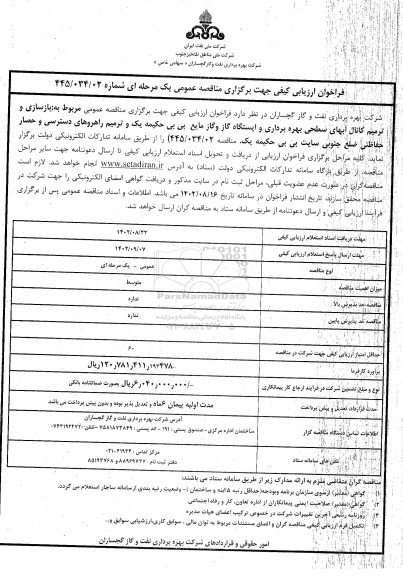 شرکت ملی نفت ایران
شرکت ملی مناطق نفتخیز جنوب
شرکت بهره برداری نفت و گاز گچساران « سهامی خاص »
فراخوان ارزیابی کیفی جهت برگزاری مناقصه عمومی یک مرحله ای شماره ۴۴۵/۰۳۴/۰۲
شرکت بهره برداری نفت و گاز گچساران در نظر دارد فراخوان ارزیابی کیفی جهت برگزاری مناقصه عمومی مربوط به:بازسازی و
ترمیم کانال آبهای سطحی بهره برداری و ایستگاه گاز وگاز مایع بی بی حکیمه یک و ترمیم راهروهای دسترسی و حصار
حفاظتی ضلع جنوبی سایت بی بی حکیمه یک. مناقصه ۴۴۵/۰۳۴/۰۲) را از طریق سامانه تدارکات الکترونیکی دولت برگزار
نماید. کلیه مراحل برگزاری فراخوان ارزیابی از دریافت و تحویل اسناد استعلام ارزیابی کیفی تا ارسال دعوتنامه جهت سایر مراحل
مناقصه، از طریق درگاه سامانه تدارکات الکترونیکی دولت (ستاد) به آدرس www.setadiran.ir انجام خواهد شد. لازم است
مناقصه‌گران در صورت عدم عضویت قبلی، مراحل ثبت نام در سایت مذکور و دریافت گواهی امضای الکترونیکی را جهت شرکت در
مناقصه محقق سازند. تاریخ انتشار فراخوان در سامانه تاریخ ۱۴۰۲/۰۸/۱۶ می باشد. اطلاعات و اسناد مناقصه عمومی پس از برگزاری
فرآیند ارزیابی کیفی و ارسال دعوتنامه از طریق سامانه ستاد به مناقصه گران ارسال خواهد شد.
مهلت دریافت اسناد استعلام ارزیابی کیفی ۱۴۰۲/۰۸/۲۲
مهلت ارسال پاسخ استعلام ارزیابی کیفی ۱۴۰۲/۰۹/۰۷
نوع مناقصه عمومی - یک مرحله ای
میزان اهمیت مناقصه متوسط
مناقصه حد پذیرش بالا ندارد
مناقصه حد پذیرش پایین ندارد
حداقل امتیاز ارزیابی کیفی جهت شرکت در مناقصه ۶۰
برآورد کارفرما
نوع و مبلغ تضمین شرکت در فرآیند ارجاع کار پیمانکاری بصورت ضمانتنامه بانکی
مدت قرارداد، تعدیل و پیش پرداخت مدت اولیه پیمان ۶ماه و تعدیل پذیر بوده و بدون پیش پرداخت می باشد
اطلاعات تماس دستگاه مناقصه گزار آدرس شرکت بهره برداری نفت و گاز گچساران
ساختمان اداره مرکزی-صندوق پستی : ۱۹۱- کد پستی :
تلفن های سامانه ستاد مرکز تماس ۴۱۹۳۴-۰۲۱
دفتر ثبت نام : ۸۸۹۶۹۷۳۷ و ۸۵۱۹۳۷۶۸
مناقصه گران متقاضی ملزم به ارائه مدارک زیر از طریق سامانه ستاد می باشند:
۱) گواهی (معتبر) ازسوی سازمان برنامه وبودجه(حداقل رتبه ۵ ابنیه و ساختمان )- وضعیت رتبه بندی ازسامانه ساجار استعلام می گردد.
۲) گواهی(معتبر) صلاحیت ایمنی پیمانکاران از اداره تعاون، کار و رفاه اجتماعی
۳) روزنامه رسمی آخرین تغییرات شرکت در خصوص ترکیب اعضای هیات مدیره
۴) تکمیل فرم ارزیابی کیفی مناقصه گران و الصاق مستندات مربوط به توان مالی . سوابق کاری،ارزشیابی سوابق و...
امور حقوقی و قراردادهای شرکت بهره برداری نفت و گاز گچساران
ParsNamadData